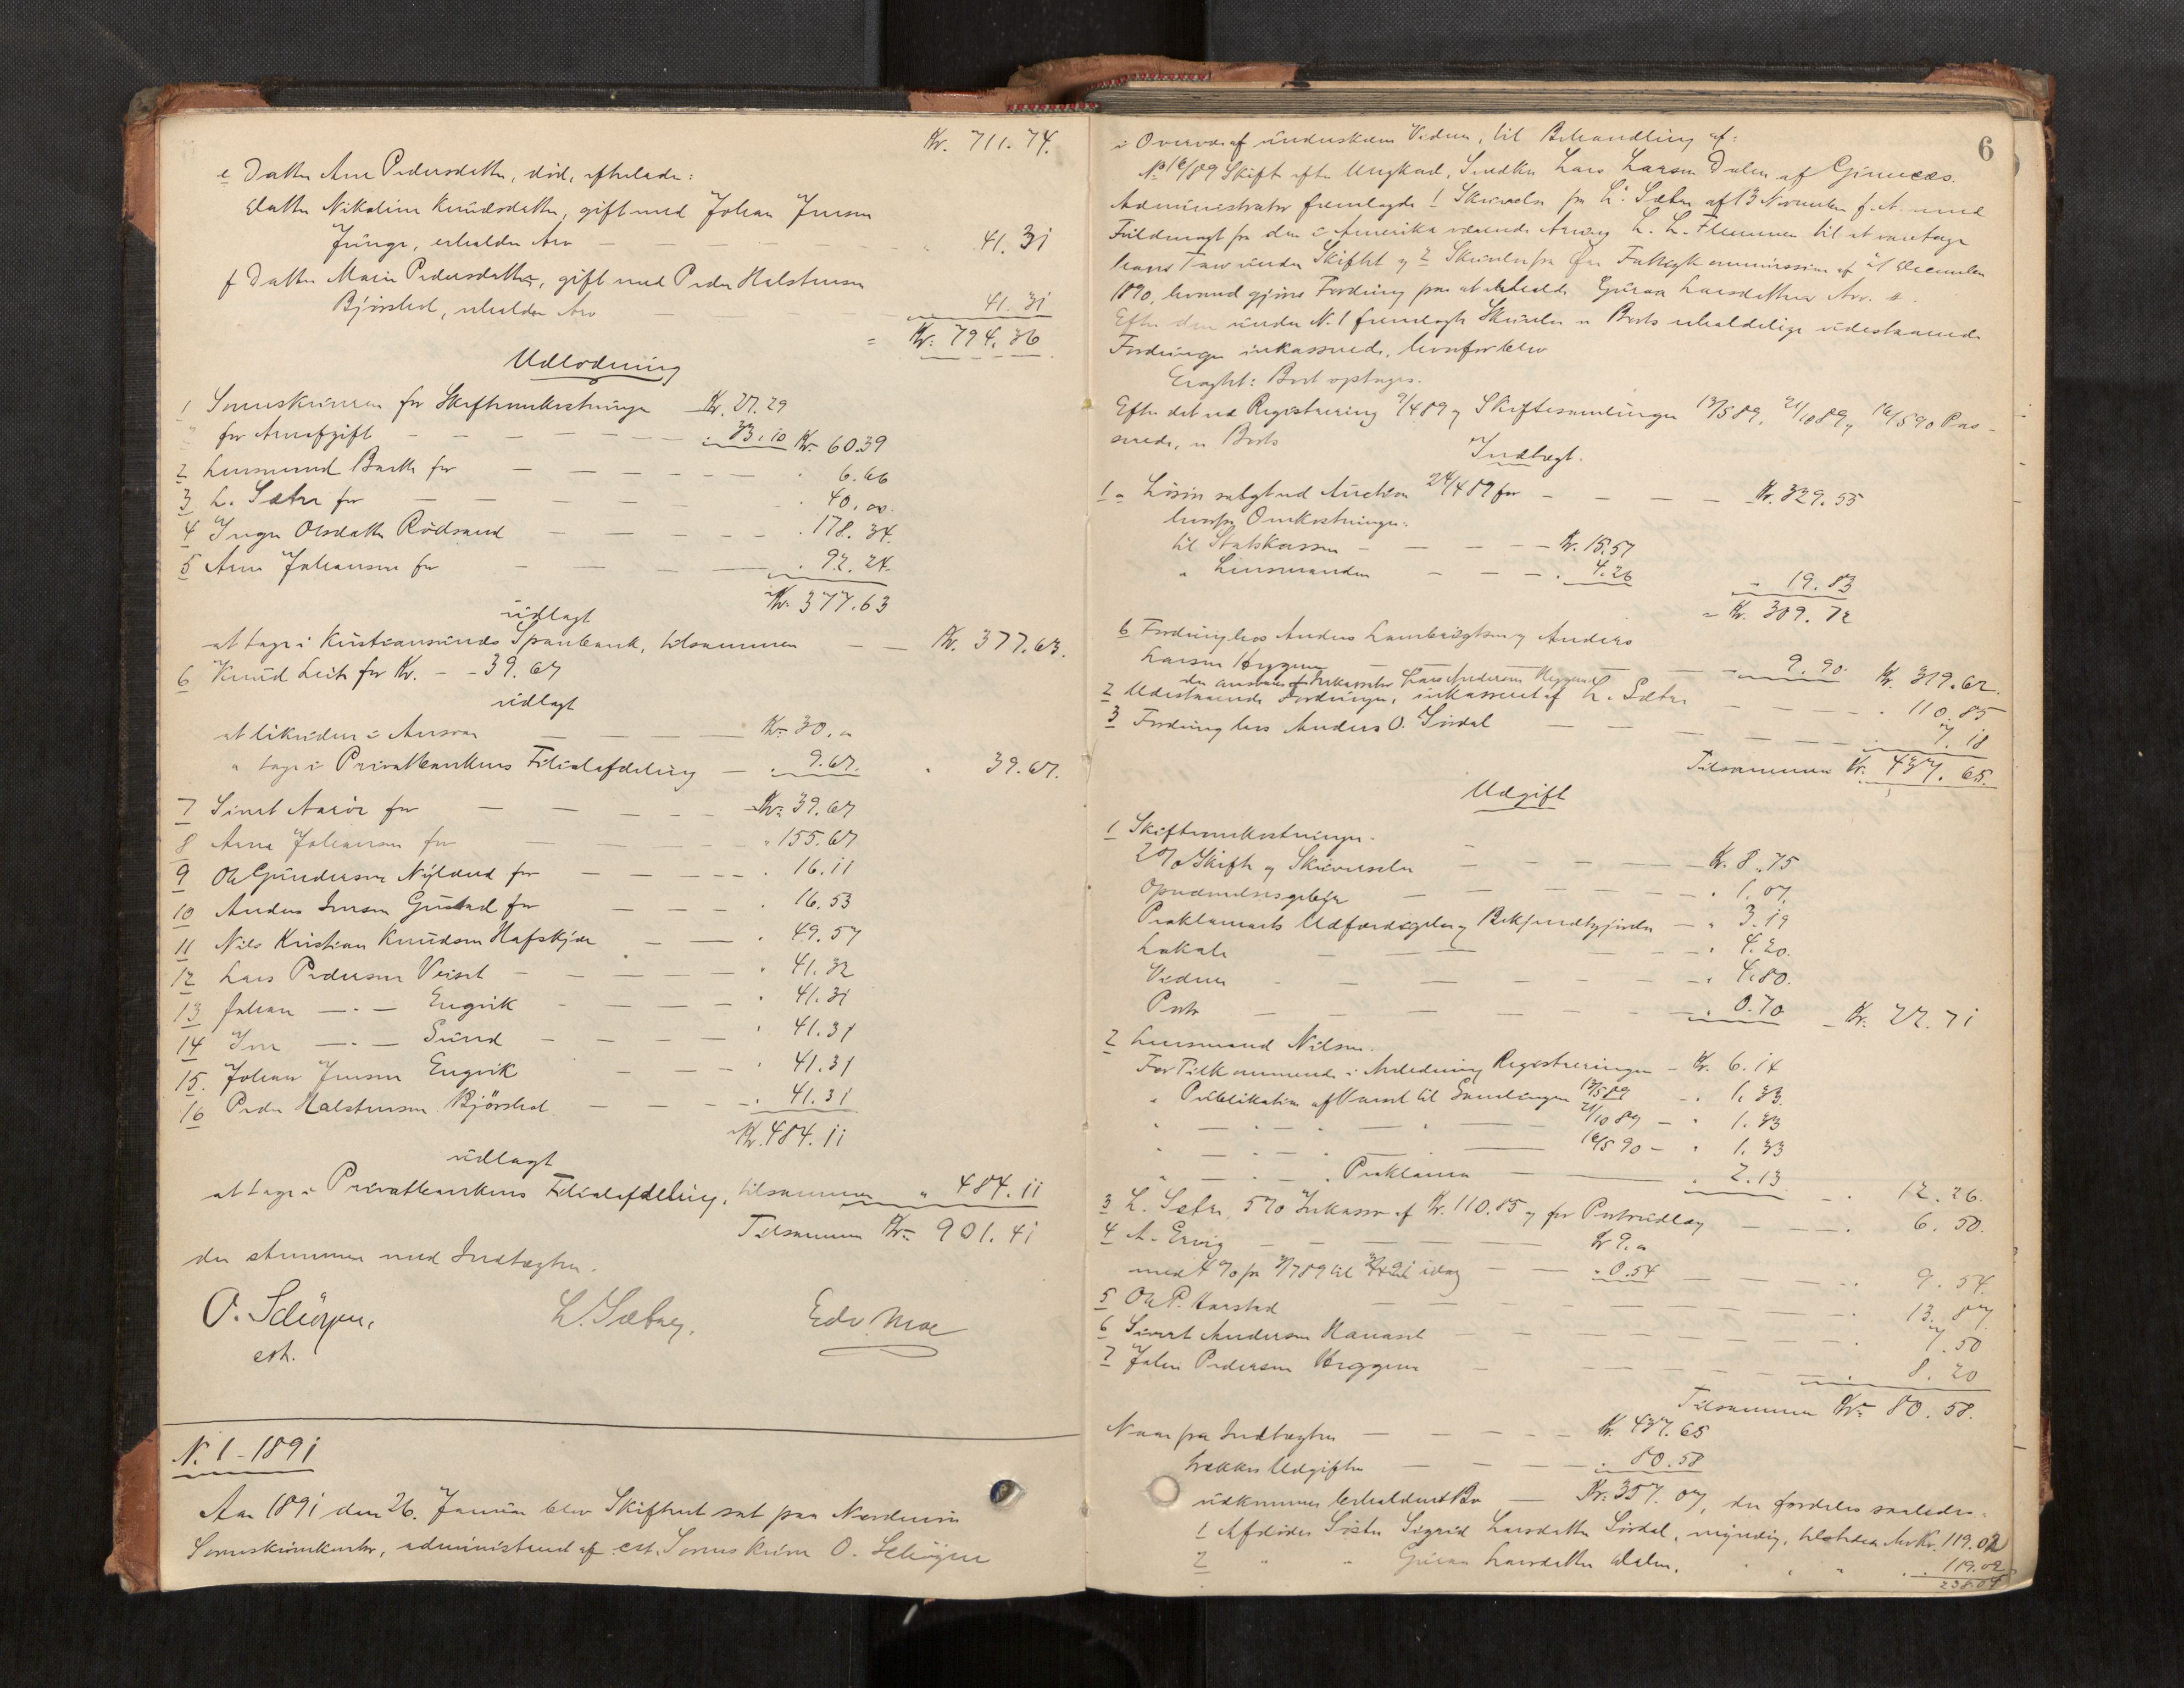 Kr. 711.74.
e Datter Ane Pedersdatter, död, efterlader:
Datter Nikoline Knudsdatter, gift med Johan Jensen
erholder Arv — — — " 41.31
f Datter Marie Pedersdatter, gift med Peder Halstensen
Bjørstad, erholder Arv — — — " 41.31
= Kr. 794.36
Udlodning
1 Sorenskriveren for Skifteomkostninger Kr. 27.29
" for Arveafgift — — — " 33.10 Kr. 60.39
2 Lensmand for — — — " 6.66
3 L. Sæter for — — — " 40.00.
4 Inger Olsdatter Rödsand — — — " 178.34.
5 Arne Johansen for — — — " 92.24
Kr. 377.63
udlagt
at tage i Kristiansunds Sparebank, tilsammen — — Kr. 377.63.
6 Knud Leite for Kr. — 39.67
udlagt
at likvidere i Ansvar — — — Kr. 30."
" tage i Privatbankens Filialafdeling — " 9.67. " 39.67.
7 Sivert for — — — Kr. 39.67
8 Arne Johansen for — — — " 155.67
9 Ole Gundersen Nyland for — — — " 16.11
10 Anders Iversen Gustad for — — — " 16.53
11 Nils Kristian Knudsen Hafskjær — — " 49.57
12 Lars Pedersen Veiset — — — " 41.32
13 Johan —"— Engvik — — — " 41.31
14 Iver —"— Sund — — — " 41.31
15. Johan Jensen Engvik — — — " 41.31
16 Peder Halstensen Bjørstad — — " 41.31
Kr. 484.11
udlagt
at tage i Privatbankens Filialafdeling, tilsammen " 484.11
Tilsammen Kr. 901.41
der stemmer med Indtægten.
O. Schiøyen, L. Sæter, Edv. Moe
cst.
N. 1 - 1891
Aar 1891 den 26. Januar blev Skifteret sat paa Nordmøre
Sorenskriverkontor, administreret af cst. Sorenskriver O. Schiøyen
6
i Overvær af underskrevne Vidner, til Behandling af:
No 16/89 Skifte efter Ungkarl, Snedker Lars Larsen Dalen af Gimnæs.
Administrator fremlagde 1 Skrivelse fra L. Sæter af 13 November f. A. med
Fuldmagt fra den i Amerika værende Arving L. L. til at varetage
hans Tarv under Skiftet og 2 Skrivelse fra Fattigkommission af December
1890, hvorved gjøres Fordring paa at erholde Guroa Larsdatters Arv.
Efter den under N. 1 fremlagte Skrivelse er Boets erholdelige udestaaende
Fordringer inkasserede, hvorfor blev
Eragtet: Boet optages.
Efter det ved Registrering 9/4 89 og Skiftesamlinger 13/5 89, 21/10 89, 16/5 90 Pas-
serede, er Boets
Indtægt.
1 a Løsøre solgt ved Auction 24/4 89 for — — — Kr. 329.55
hvorfra Omkostninger:
til Statskassen — — — Kr. 15.57
" Lensmanden — — — " 4.26
" 19.83
= Kr. 309.72
b Fordring hos Anders Lambrigtsen og Anders
Larsen Heggem — — — " 9.90. Kr. 319.62.
der ansvares af Inkassator Lars Andersen Heggem
2 Udestaaende Fordringer, inkasseret af L. Sæter — — " 110.85
3 Fordring hos Anders O. Sirdal — — — " 7.18
Tilsammen Kr. 437.65.
Udgift
1 Skifteomkostninger.
2% Skifte og Skriverselv — — — Kr. 8.75
Opnævnelsesgebyr — — — " 1.07.
Proklamaets Udfærdigelse og Bekjendtgjørelse — " 3.19
Lokale — — — " 4.20.
Vidner — — — " 4.80.
Porto — — — " 0.70 — Kr. 22.71
2 Lensmand Nilsen.
For Tilkommende i Anledning Registreringen — Kr. 6.14
" Publikation af Varsel til Samlingen 13/5 89 — " 1.33.
" —"— " — 21/10 89 — " 1.33
" —"— " — 16/5 90 — " 1.33
" " " Proklama — " 2.13 — " 12.26.
3 L. Sæter, 5% Inkasso af Kr. 110.85 og for Portoudlæg — — " 6.50.
4 A. — — — Kr 9."
med 4% fra idag — — " 0.54 — — " 9.54.
5 Ole P. Harstad — — — " 13.87.
6 Sivert Andersen Hanaset — — — " 7.50
7 Johan Pedersen Heggem — — — " 8.20
Tilsammen Kr. 80.58.
Naar fra Indtægten — — — Kr. 437.65
trækkes Udgiften — — — " 80.58
udkommer beholdent Bo — Kr. 357.07, der fordeles saaledes:
1 Afdødes Söster Sigrid Larsdatter Sirdal, myndig, tilstedes Arv Kr. 119.02
2 " " Guroa Larsdatter Dalen, " " " 119.02
238.04